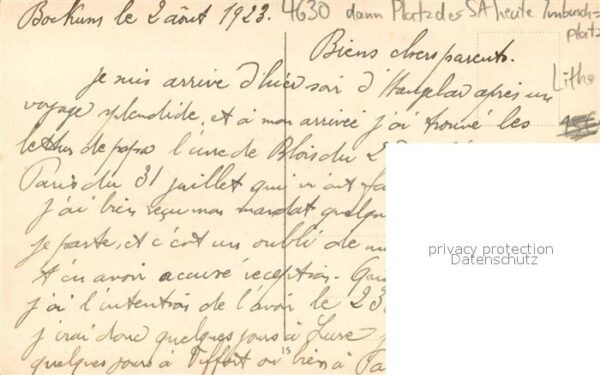 Bochum le 2 août 1923.
4630 dann Platz der SA heute Imbusch=
platz
Biens chers parents.
Litho
Je suis arrivé d'hier soir d' après un
voyage splendide, et à mon arrivée j'ai trouvé les
lettres de papa l'une de Blois du 2
Paris du 31 juillet qui m'ont
j'ai bien reçu mon mandat quelqu
je parte, et c'est un oubli de
t'en avoir accusé réception.
j'ai l'intention de l'avoir le 23
j'irai donc quelques jours à Lure
quelques jours à ou bien à Pa
15
privacy protection
Datenschutz